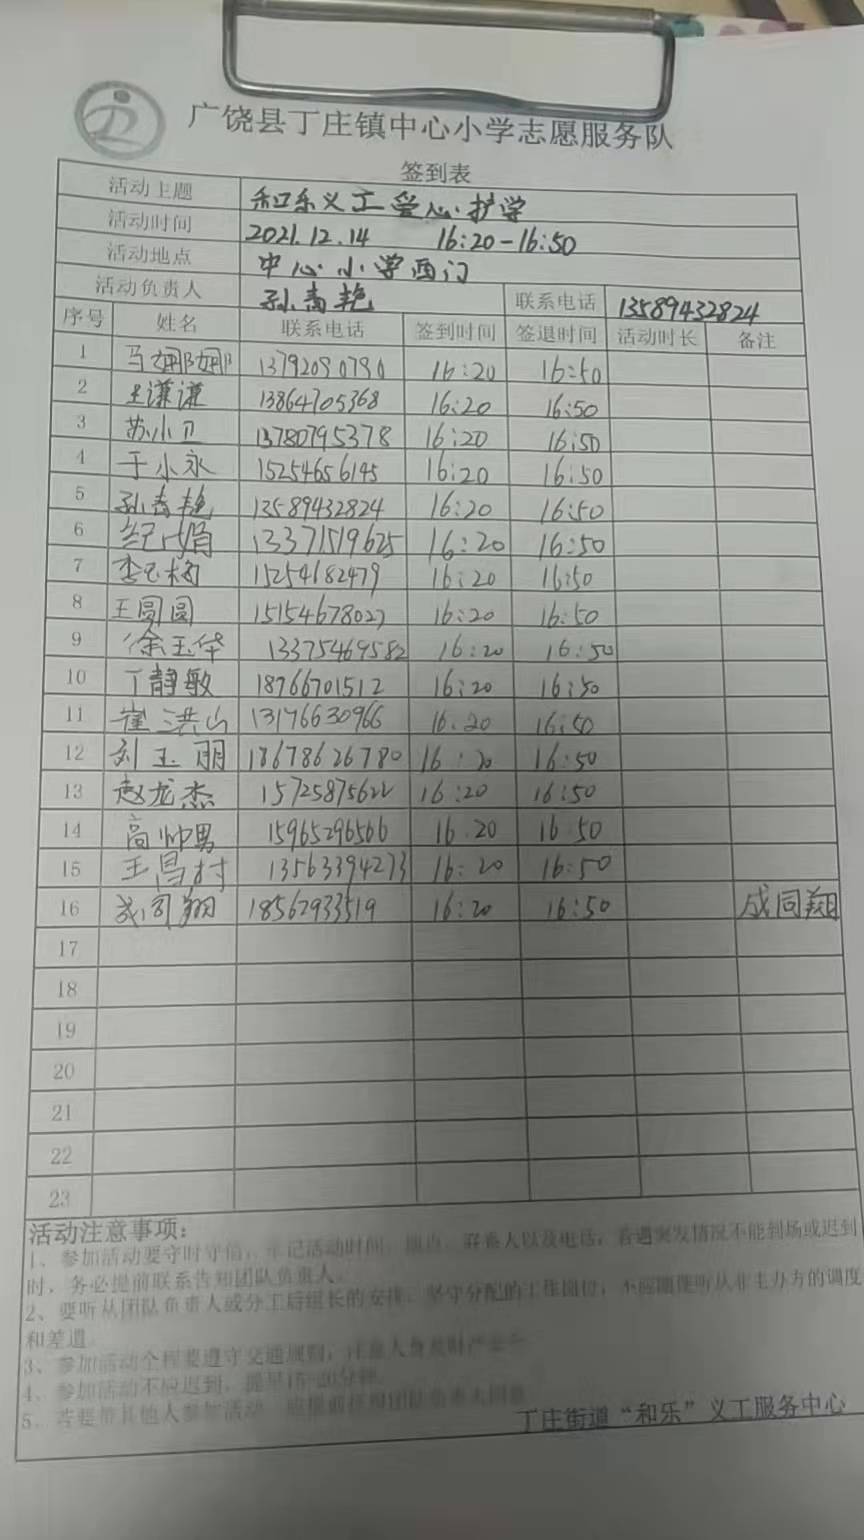 广饶县丁庄镇中心小学志愿服务队
签到表
活动主题 和乐义工爱心护学
活动时间 2021.12.14 16:20-16:50
活动地点 中心小学西门
活动负责人 孙春艳 联系电话 13589432824
序号 姓名 联系电话 签到时间 签退时间 活动时长 备注
1 马娜娜 13792090790 16:20 16:50
2 王谦谦 13864705368 16:20 16:50
3 苏小卫 13780795378 16:20 16:50
4 于小永 15254656145 16:20 16:50
5 孙春艳 13589432824 16:20 16:50
6 13371519625 16:20 16:50
7 李玉梅 15254682479 16:20 16:50
8 王圆圆 15154678027 16:20 16:50
9 徐玉华 13375469582 16:20 16:50
10 丁静敏 18766701512 16:20 16:50
11 崔洪山 13176630966 16:20 16:50
12 刘玉朋 18678626780 16:20 16:50
13 赵龙杰 15725875622 16:20 16:50
14 高帅男 15965296566 16:20 16:50
15 王昌村 13563394273 16:20 16:50
16 成同翔 18562933519 16:20 16:50 成同翔
17
18
19
20
21
22
23
活动注意事项：
1、参加活动要守时守信，牢记活动时间、地点、负责人以及电话，若遇突发情况不能到场或迟到
时，务必提前联系告知团队负责人。
2、要听从团队负责人或分工后组长的安排，坚守分配的工作岗位，不应随便听从非主办方的调度
和差遣。
3、参加活动全程要遵守交通规则，注意人身及财产安全
4、参加活动不应迟到，提早15-20分钟
5、若要带其他人参加活动，应提前征得团队负责人同意
丁庄街道“和乐”义工服务中心